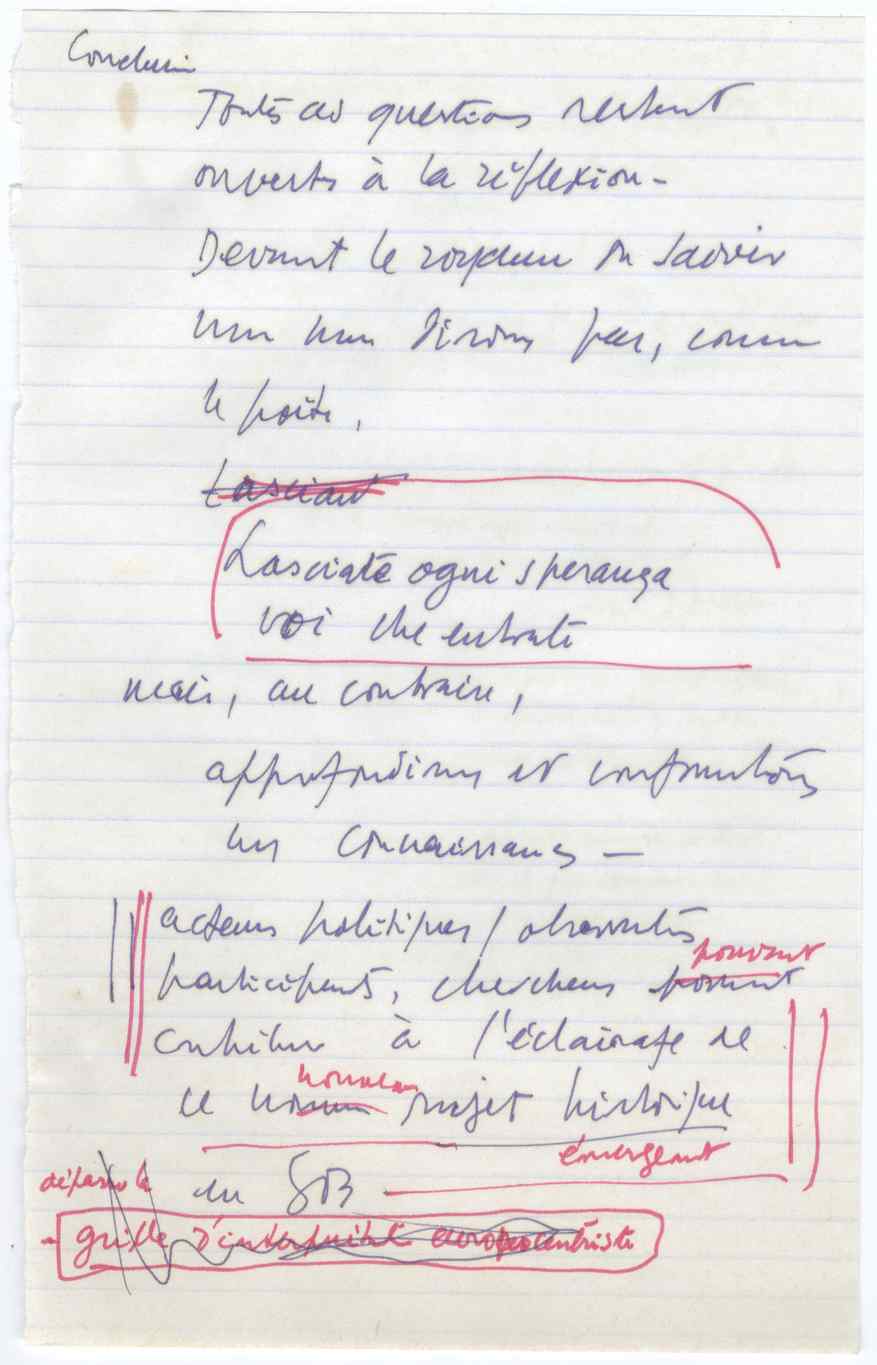 Conclusion
Toutes ces questions restent
ouvertes à la réflexion -
Devant le royaume du savoir
nous ne dirons pas, comme
le poète,
Lasciant
Lasciate ogni speranza
voi che entrate
mais, au contraire,
approfondirons et confronterons
nos connaissances —
acteurs politiques / observateurs
pouvant
participants, chercheurs pouvant
contribuer à l'éclairage de
nouveau
ce nouveau sujet historique
émergeant
dépasser la
du
- grille d'interprété européocentriste